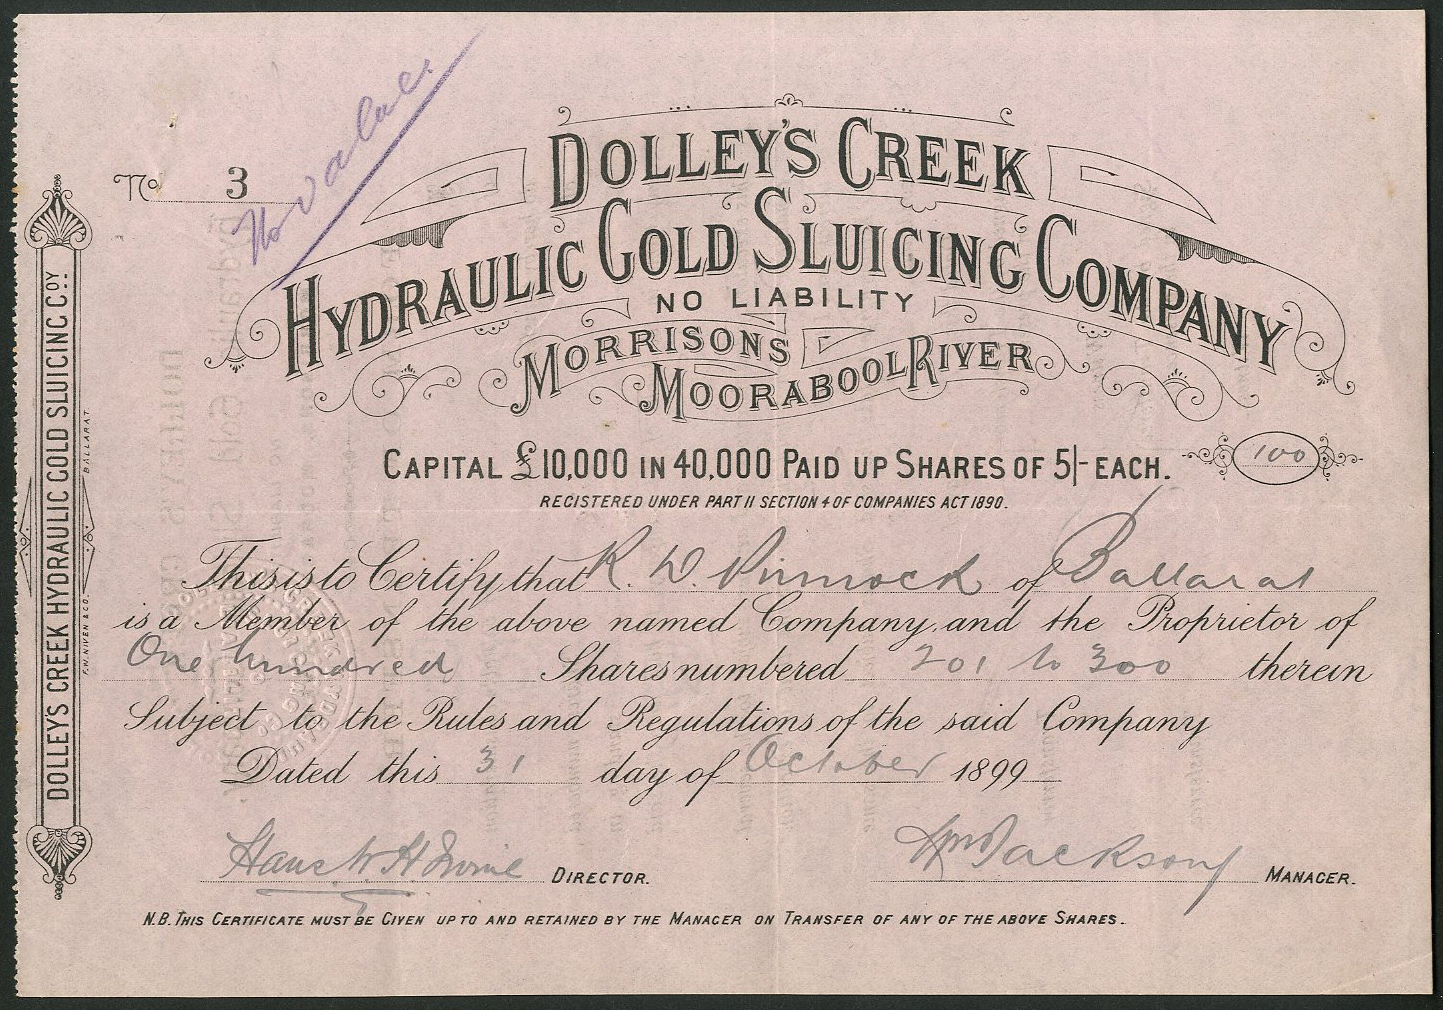 No 3
No value.
DOLLEY'S CREEK
HYDRAULIC GOLD SLUICING COMPANY
NO LIABILITY
MORRISONS
MOORABOOL RIVER
CAPITAL £10,000 IN 40,000 PAID UP SHARES OF 5/- EACH.
100
REGISTERED UNDER PART II SECTION 4 OF COMPANIES ACT 1890.
This is to Certify that R. D. Pinnock of Ballarat
is a Member of the above named Company, and the Proprietor of
One hundred Shares numbered 201 to 300 therein
Subject to the Rules and Regulations of the said Company
Dated this 31 day of October 1899
Hans W H Irvine DIRECTOR.
Wm Jackson MANAGER.
N.B. THIS CERTIFICATE MUST BE GIVEN UP TO AND RETAINED BY THE MANAGER ON TRANSFER OF ANY OF THE ABOVE SHARES.
DOLLEYS CREEK HYDRAULIC GOLD SLUICING COY.
F.W. NIVEN & CO. BALLARAT.